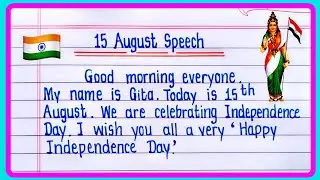 15 August Speech
Good morning everyone.
My name is Gita. Today is 15th
August. We are celebrating Independence
Day. I wish you all a very 'Happy
Independence Day.'